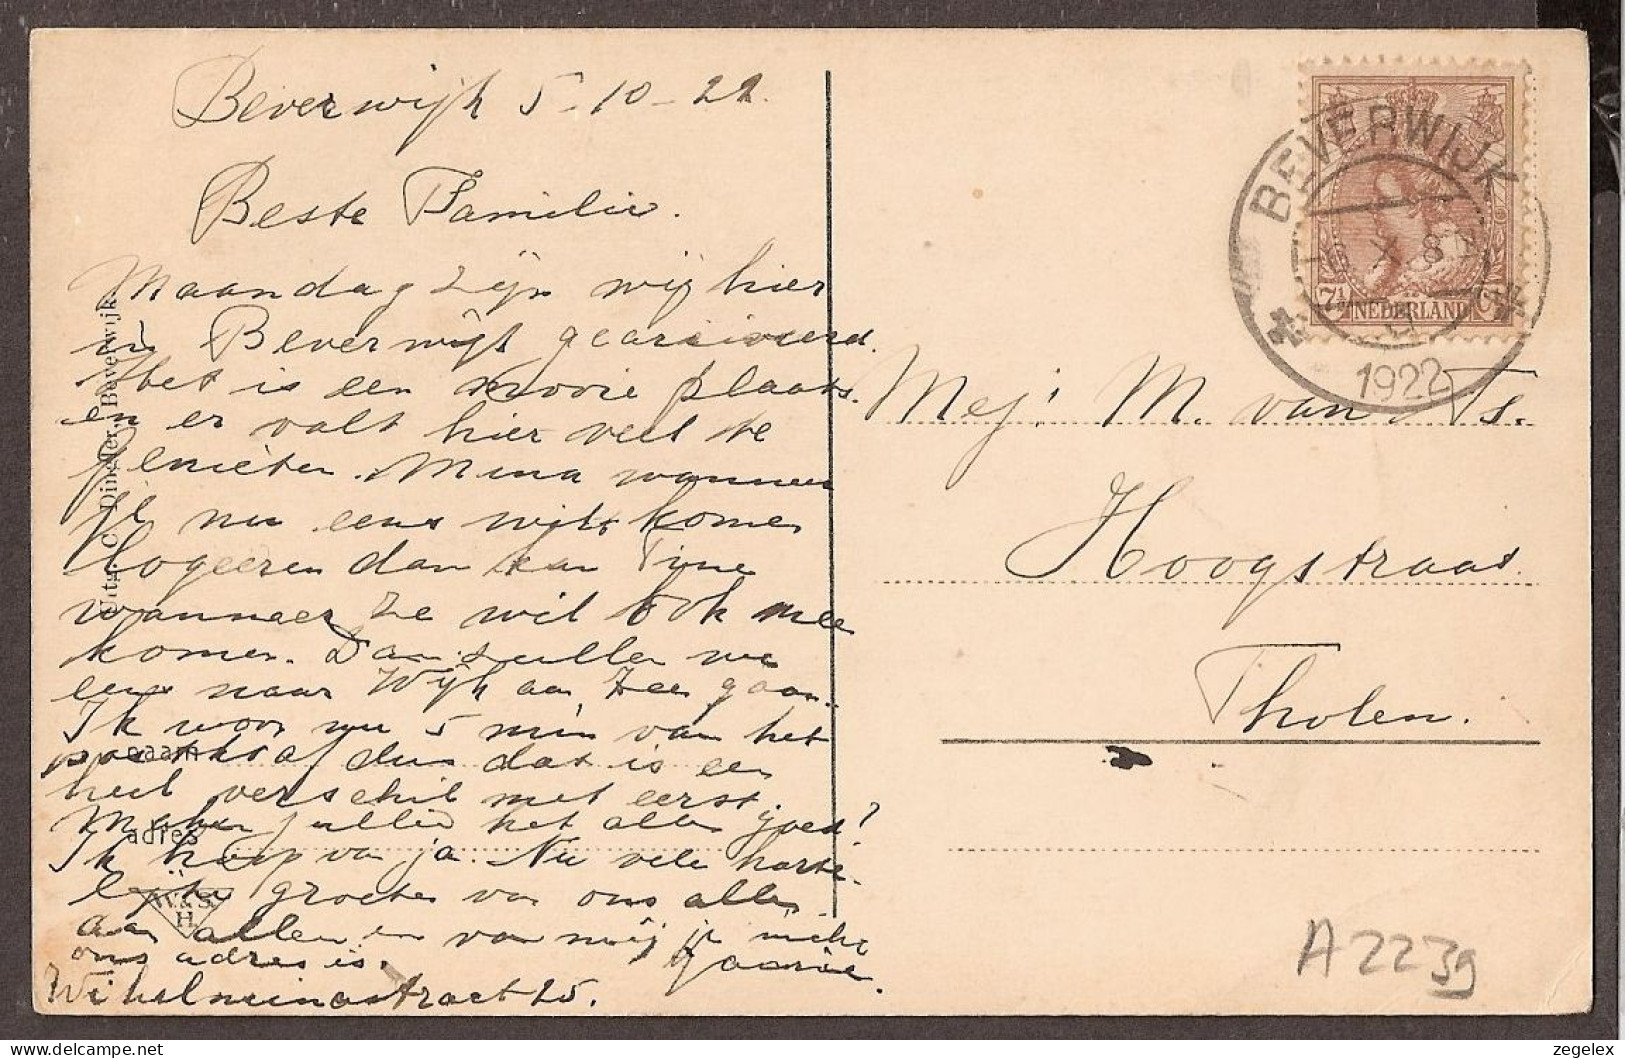 Beverwijk 5-10-22.
Beste Familie.
Maandag zijn wij hier
in Beverwijk gearriveerd.
Het is een mooie plaats.
en er valt hier veel te
genieten. Mina wanneer
je nu eens wilt komen
logeeren dan kan Tine
wanneer ze wil ook mee
komen. Dan zullen we
eens naar Wijk aan Zee gaan.
Ik woon nu 5 min van het
dus dat is een
heel verschil met eerst.
Maken jullie het allen goed?
Ik hoop van ja. Nu vele harte-
lijke groeten van ons allen
aan allen en van mij je nicht
ons adres is.
Wilhelminastraat 25.
Uitg. C. Dinesler, Beverwijk.
naam
adres
W. & S.
H.
BEVERWIJK
X 8
1922
7½ NEDERLAND
Mej. M. van Ts.
Hoogstraat
Tholen.
A2239
zegelex